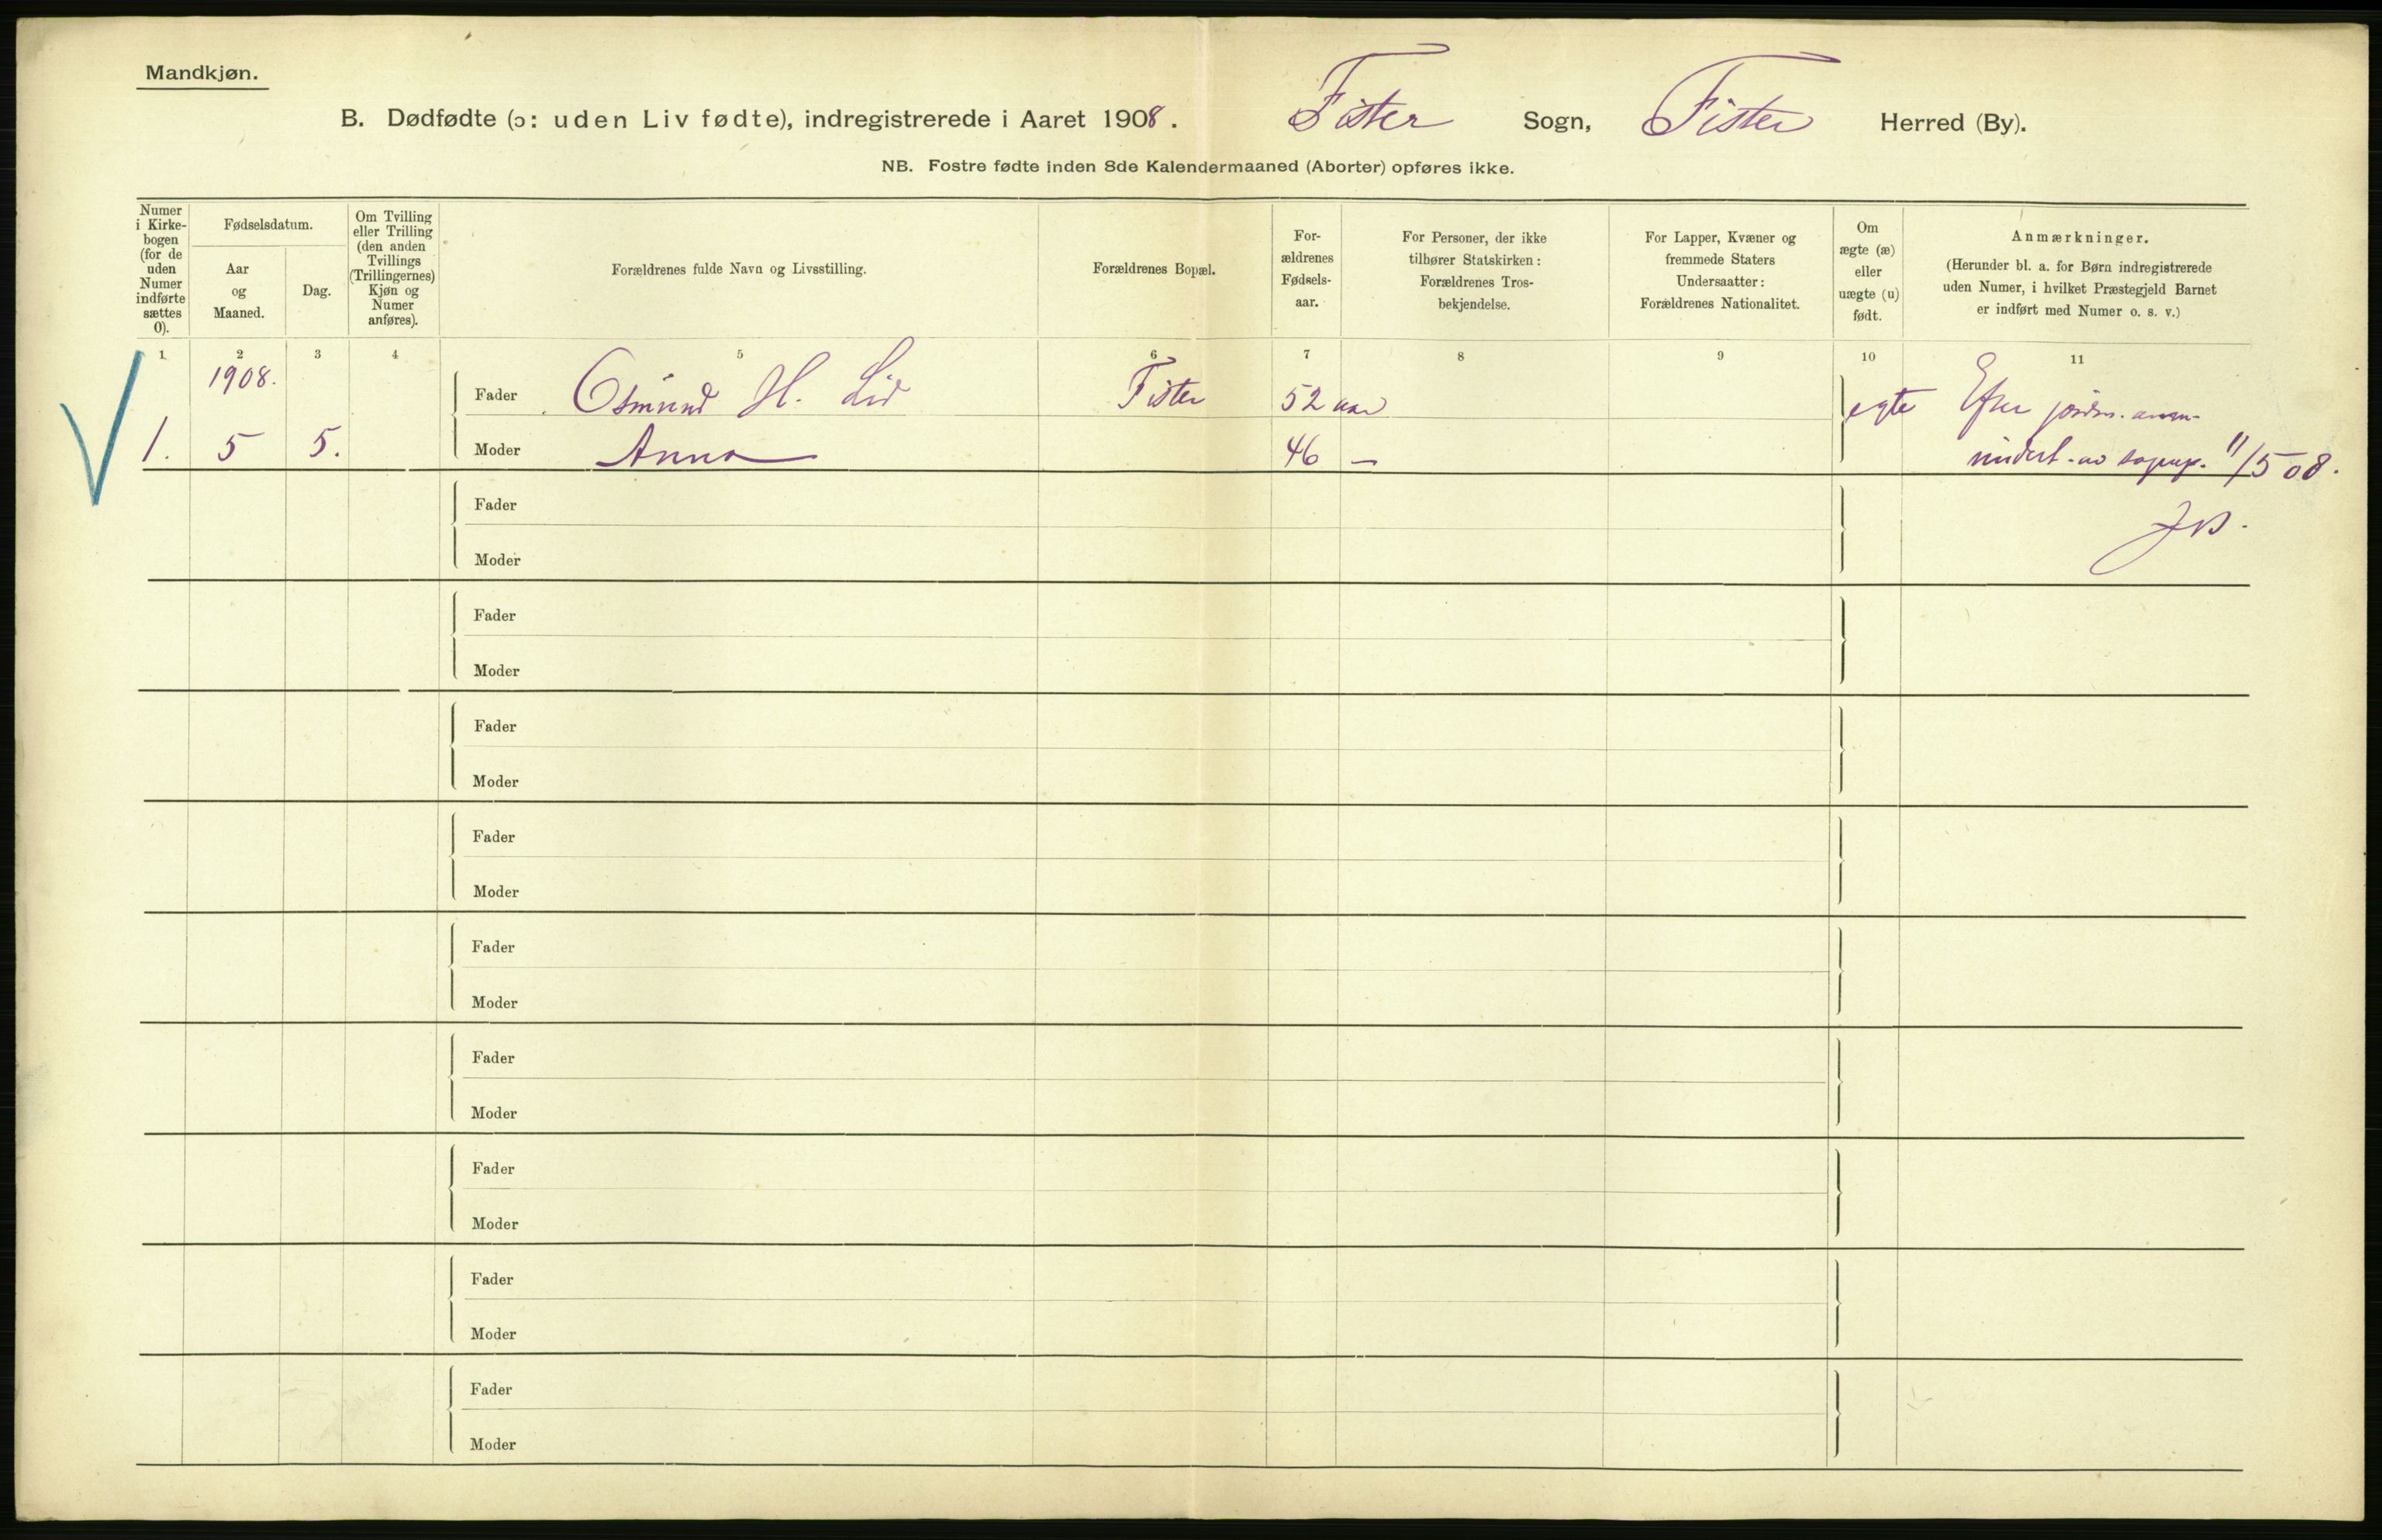 Mandkjøn.
B. Dødfødte (ɔ: uden Liv fødte), indregistrerede i Aaret 1908. Fister Sogn, Fister Herred (By).
NB. Fostre fødte inden 8de Kalendermaaned (Aborter) opføres ikke.
Numer
i Kirke-
bogen
(for de
uden
Numer
indførte
sættes
0).
Fødselsdatum.
Aar
og
Maaned.
Dag.
Om Tvilling
eller Trilling
(den anden
Tvillings
(Trillingernes)
Kjøn og
Numer
anføres).
Forældrenes fulde Navn og Livsstilling.
Forældrenes Bopæl.
For-
ældrenes
Fødsels-
aar.
For Personer, der ikke
tilhører Statskirken:
Forældrenes Tros-
bekjendelse.
For Lapper, Kvæner og
fremmede Staters
Undersaatter:
Forældrenes Nationalitet.
Om
ægte (æ)
eller
uægte (u)
født.
Anmærkninger.
(Herunder bl. a. for Børn indregistrerede
uden Numer, i hvilket Præstegjeld Barnet
er indført med Numer o. s. v.)
1 2 3 4 5 6 7 8 9 10 11
1908.
Fader Osmund H. Lid Fister 52 aar egte Efter jordm.
1. 5 5. Moder Anna 46 — 11/5 08.
Fader
Moder
Fader
Moder
Fader
Moder
Fader
Moder
Fader
Moder
Fader
Moder
Fader
Moder
Fader
Moder
Fader
Moder